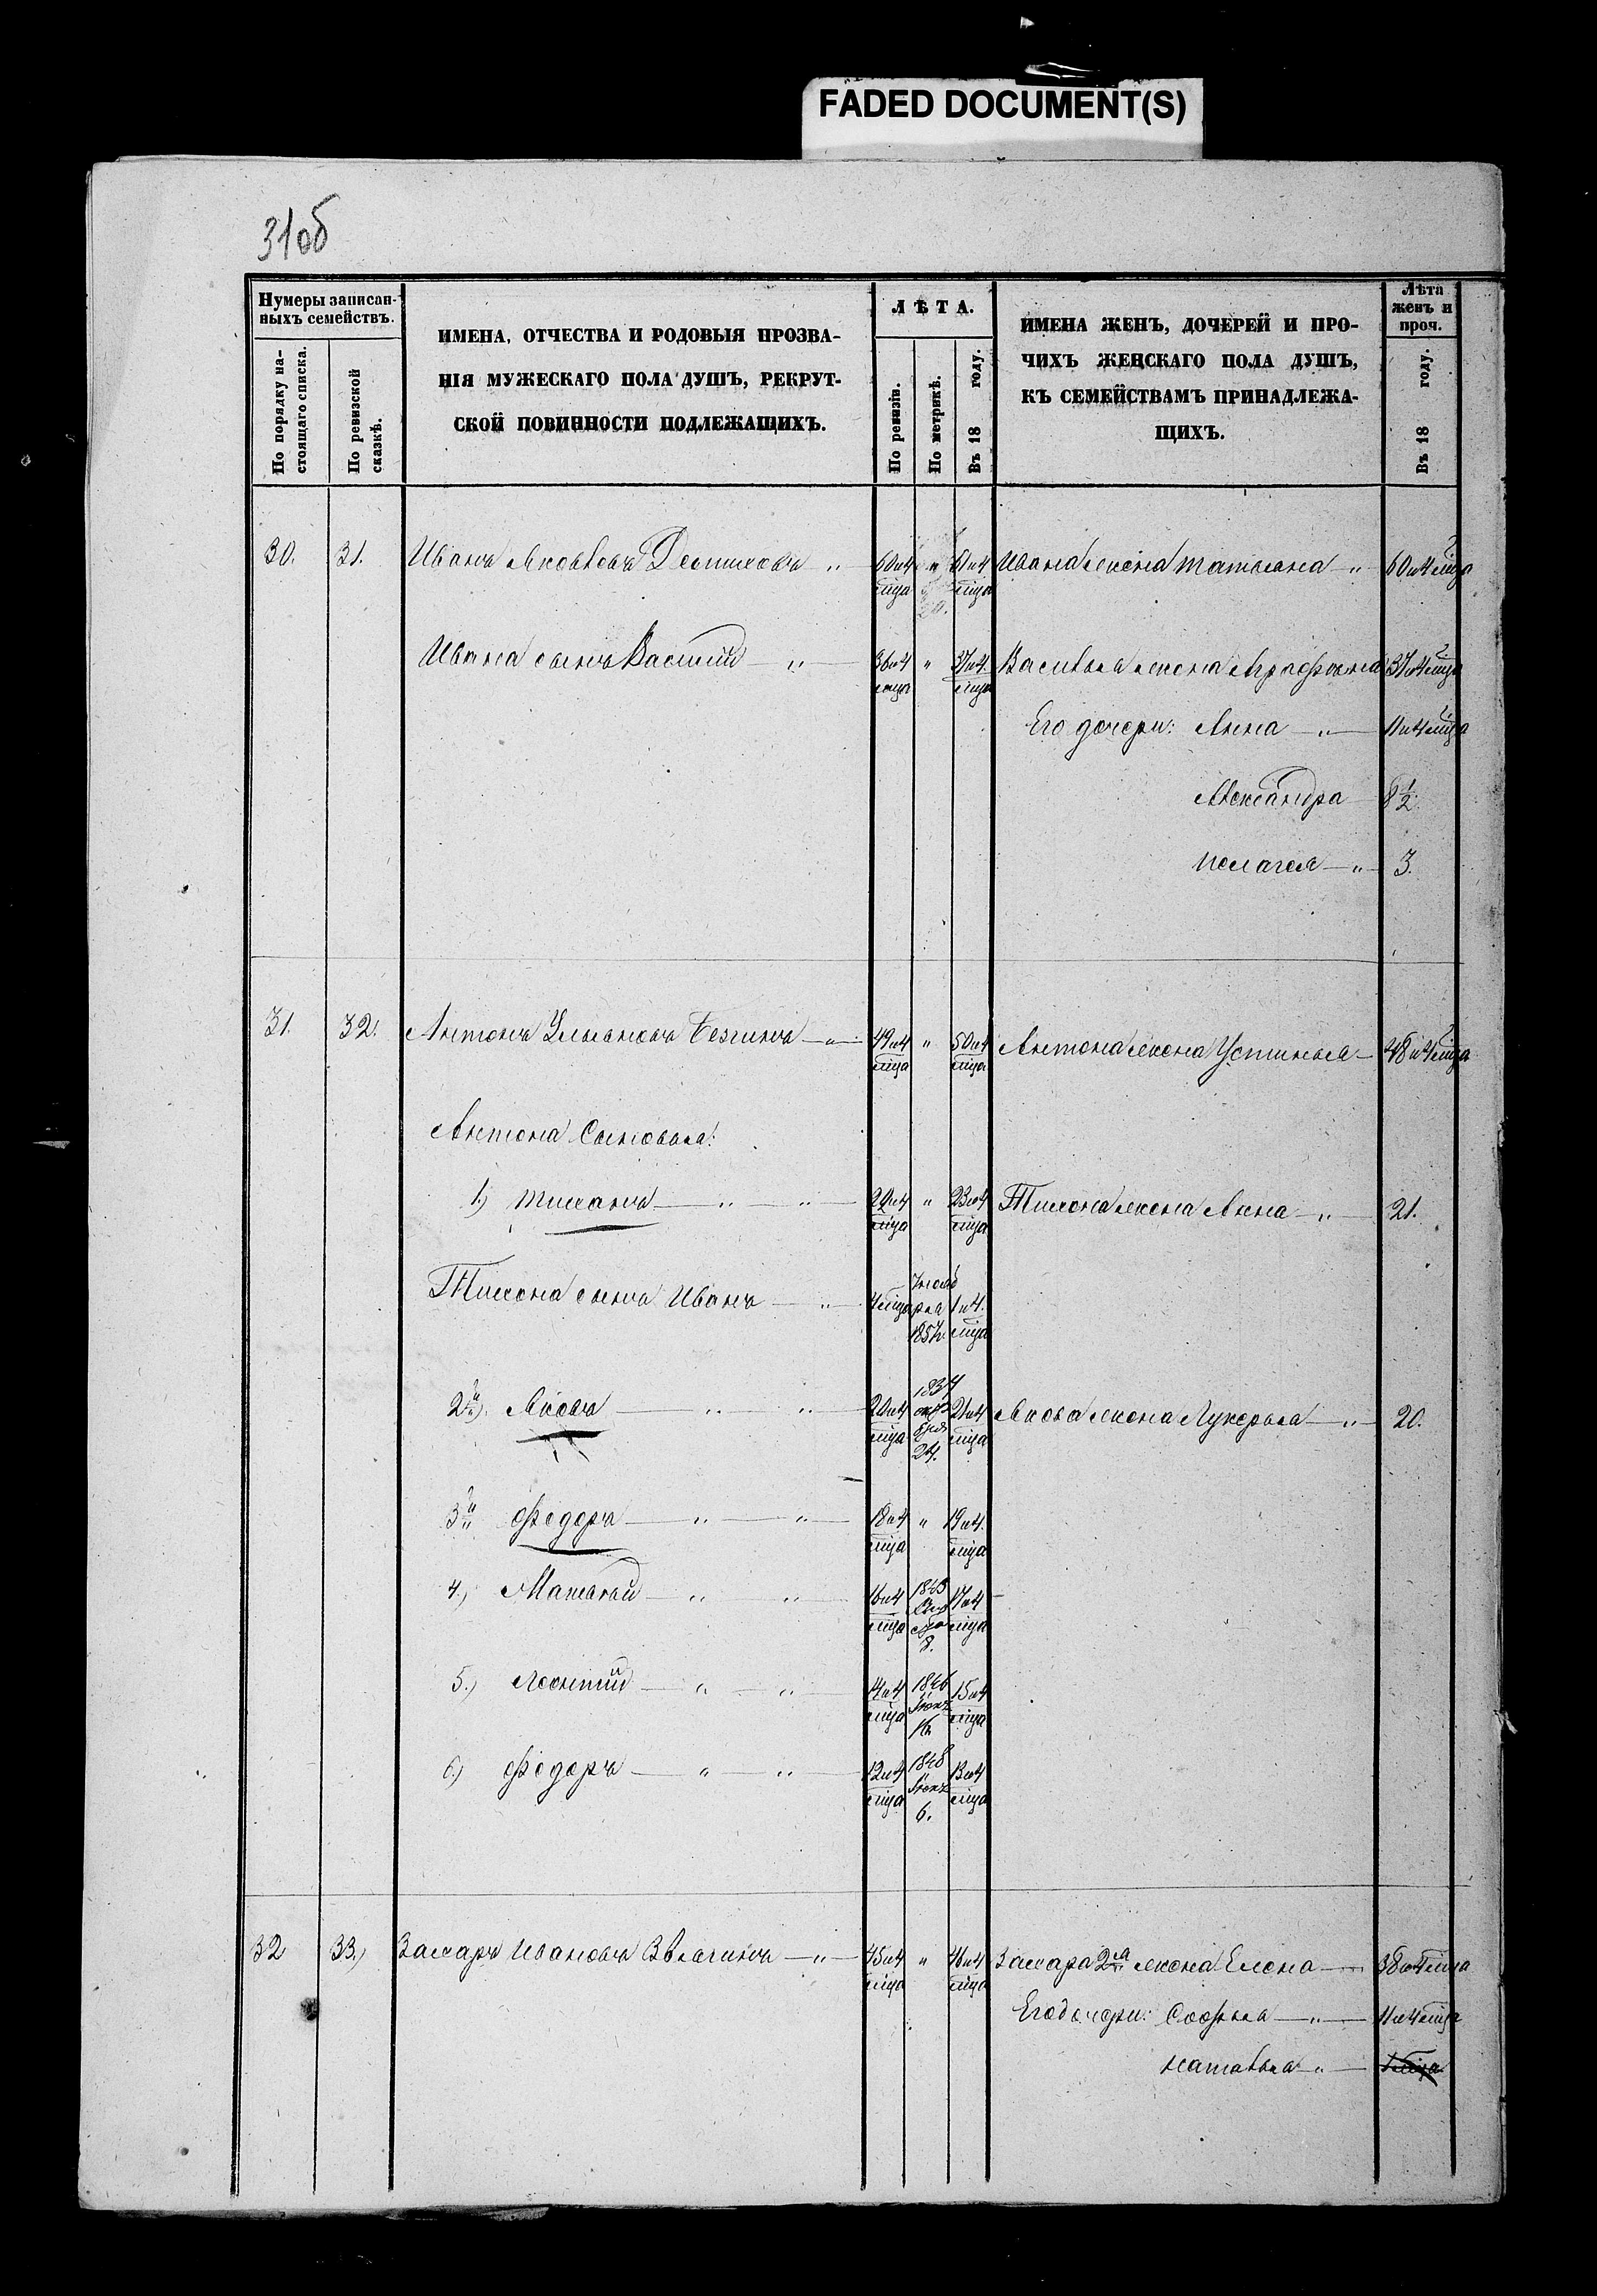 FADED DOCUMENT(S)
31об
Нумеры записан-
ныхъ семействъ.
По порядку на-
стоящаго списка.
По ревизской
сказкѣ.
ИМЕНА, ОТЧЕСТВА И РОДОВЫЯ ПРОЗВА-
НІЯ МУЖЕСКАГО ПОЛА ДУШЪ, РЕКРУТ-
СКОЙ ПОВИННОСТИ ПОДЛЕЖАЩИХЪ.
ЛѢТА.
По ревизіи.
По метрикѣ.
Въ 18 году.
ИМЕНА ЖЕНЪ, ДОЧЕРЕЙ И ПРО-
ЧИХЪ ЖЕНСКАГО ПОЛА ДУШЪ,
КЪ СЕМЕЙСТВАМЪ ПРИНАДЛЕЖА-
ЩИХЪ.
Лѣта
женъ и
проч.
Въ 18 году.
30. 31. Иванъ Яковлевъ " 60 и 4 мца " 61 и 4 мца Ивана жена Татьяна " 60 и 4 мца
Ивана сынъ Василий " 36 и 4 мца " 37 и 4 мца Василья жена Аграфена 37 и 4 мца
Его дочери: Анна " 11 и 4 мца
Александра 8 1/2
Пелагея " 3.
31. 32. Антонъ Ульяновъ " 49 и 4 мца " 50 и 4 мца Антона жена Устинья 48 и 4 мца
Антона Сыновья:
1.) Тихонъ " " 22 и 4 мца " 23 и 4 мца Тихона жена Анна " 21.
Тихона сынъ Иванъ " 4 мца 1857. 1 и 4 мца
2й) Яковъ " " 20 и 4 мца 1837 октября 24. 21 и 4 мца Якова жена Лукерья " 20.
3й Федоръ " " 18 и 4 мца " 19 и 4 мца
4.) Матвей " " 16 и 4 мца 8. 17 и 4 мца
5.) Леонтий " " 14 и 4 мца 1846 16 15 и 4 мца
6.) Федоръ " " 12 и 4 мца 1848 6. 13 и 4 мца
32 33.) Захаръ Ивановъ " 45 и 4 мца " 46 и 4 мца Захара 2я жена Елена 38 и 4 мца
Его дочери: Софья " 11 и 4 мца
Наталья "